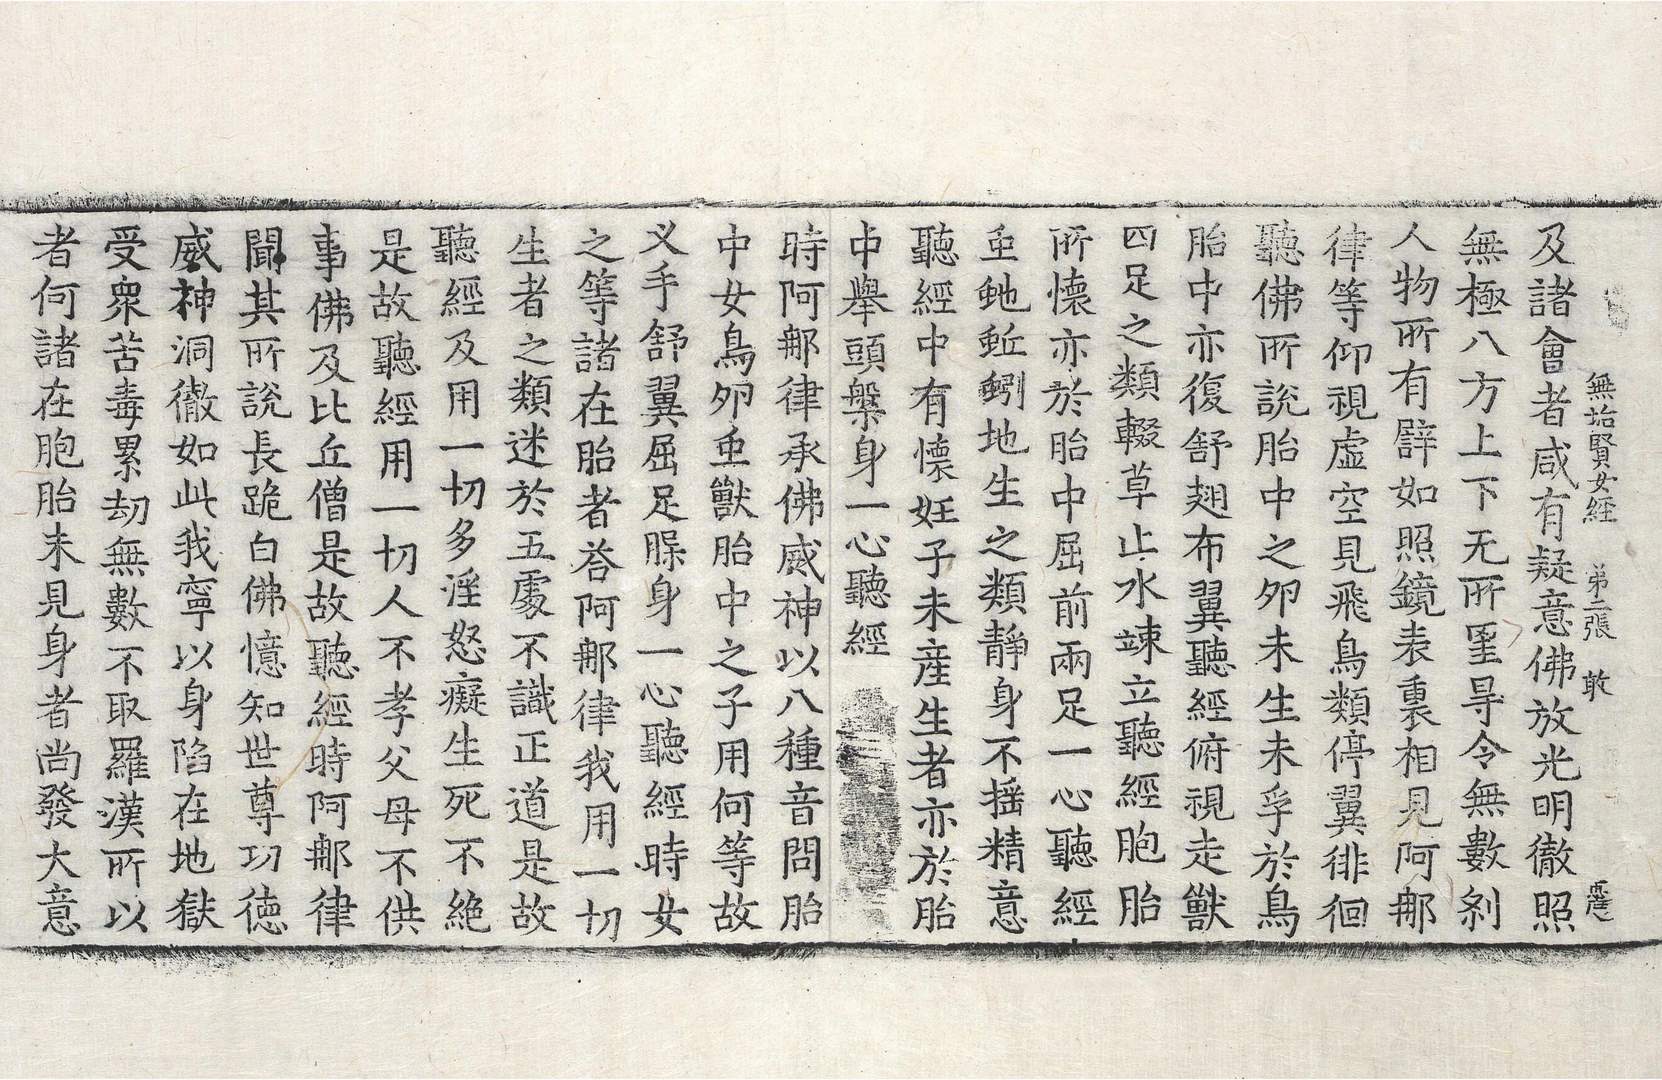 無垢賢女経 苐二張 敢
及諸會者咸有疑意佛放光明徹照
無極八方上下无所罣㝵令無數剎
人物所有譬如照鏡表裏相見阿那
律等仰視虛空見飛鳥類停翼徘徊
聽佛所說胎中之卵未生未孚於鳥
胎中亦復舒翅布翼聽經俯視走獸
四足之類輟草止水竦立聽經胞胎
所懷亦於胎中屈前兩足一心聽經
虫虵蚯蚓地生之類靜身不揺精意
聽經中有懷妊子未産生者亦於胎
中舉頭槃身一心聽經
時阿那律承佛威神以八種音問胎
中女鳥卵虫獸胎中之子用何等故
义手舒翼屈足躶身一心聽經時女
之等諸在胎者荅阿那律我用一切
生者之類迷於五處不識正道是故
聽經及用一切多淫怒癡生死不絕
是故聽經用一切人不孝父母不供
事佛及比丘僧是故聽經時阿那律
聞其所說長跪白佛憶知世尊功德
威神洞徹如此我寧以身陷在地獄
受衆苦毒累劫無數不取羅漢所以
者何諸在胞胎未見身者尚發大意